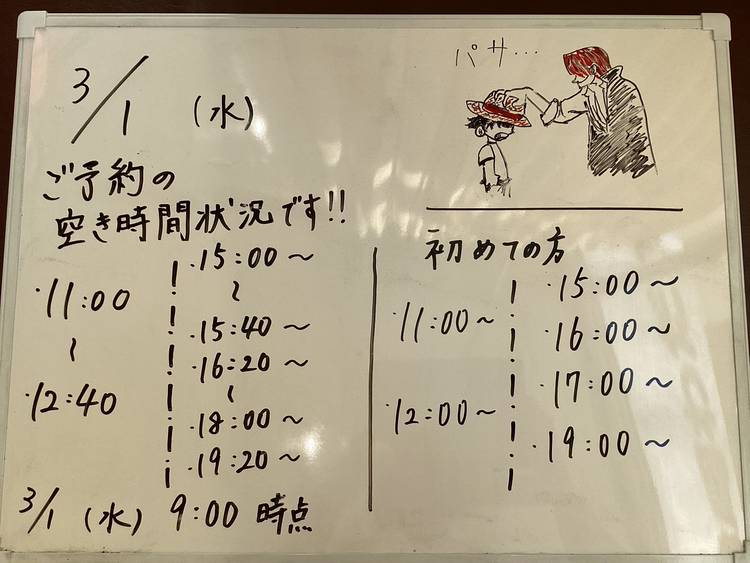 3/1 (水)
パサ…
ご予約の
空き時間状況です!!
・11:00
〜
・12:40
・15:00〜
〜
・15:40〜
・16:20〜
〜
・18:00〜
・19:20〜
初めての方
・11:00〜
・12:00〜
・15:00〜
・16:00〜
・17:00〜
・19:00〜
3/1 (水) 9:00 時点